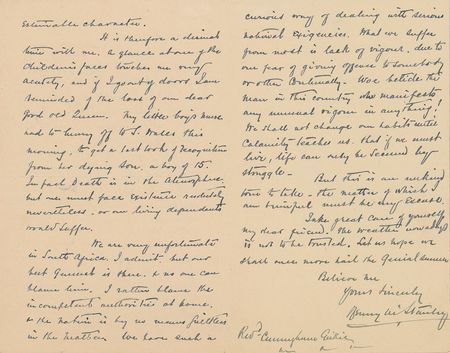 Estimable character.
It is therefore a dismal
time with me. A glance at one of the
children's faces touches me very
acutely, and if I go out of doors I am
reminded of the loss of our dear
good old Queen. My little boy's nurse
had to hurry off to S. Wales this
morning, to get a last look of recognition
from her dying son, a boy of 15.
In fact Death is in the atmosphere,
but one must face existence resolutely
nevertheless, or our living dependents
would suffer.
We are very unfortunate
in South Africa, I admit, but our
best General is there, & no one can
blame him. I rather blame the
incompetent authorities at home.
& the nation is by no means faultless
in the matter. We have such a
curious way of dealing with serious
national exigencies. What we suffer
from most is lack of vigour, due to
our fear of giving offence to somebody
or other continually. Woe betide the
man in this country who manifests
any unusual vigour in anything!
We shall not change our habits until
Calamity teaches us, that if we must
live, life can only be secured by
struggle.
But this is an
tone to take. The matter of which I
am mindful must be my excuse.
Take great care of yourself
my dear friend. The weather nowadays
is not to be trusted. Let us hope we
shall once more hail the genial summer
Believe me
Yours Sincerely
Henry M Stanley
Revd. Cunninghame Geikie